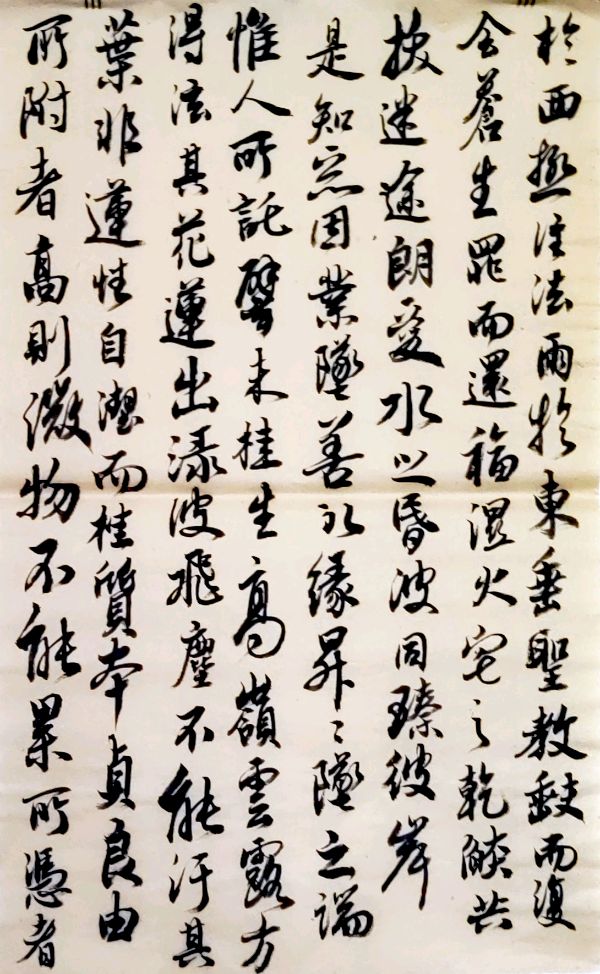 於西極注法雨於東垂聖教缺而復
全蒼生罪而還福濕火宅之乾焰共
拔迷途朗愛水之昏波同臻彼岸
是知惡因業墜善以緣昇々墜之端
惟人所託譬夫桂生高嶺雲露方
得泫其花蓮出淥波飛塵不能汙其
葉非蓮性自潔而桂質本貞良由
所附者高則微物不能累所憑者